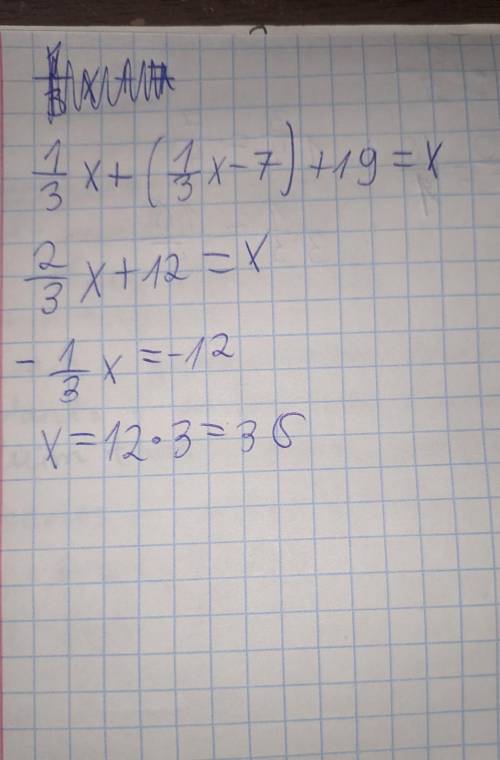 1/3 x + (1/3 x - 7) + 19 = x
2/3 x + 12 = x
- 1/3 x = -12
x = 12 · 3 = 36